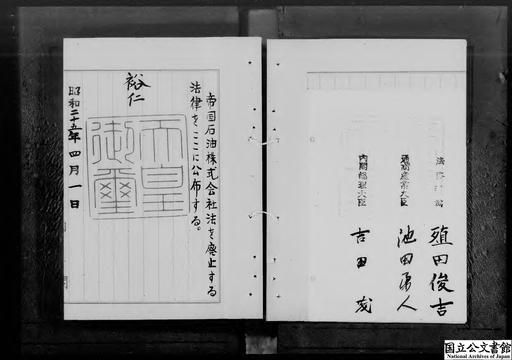 法務総裁 殖田俊吉
通商産業大臣 池田勇人
内閣総理大臣 吉田茂
帝国石油株式会社法を廃止する
法律をここに公布する。
裕仁
天皇
御璽
昭和二十五年四月一日
国立公文書館
National Archives of Japan